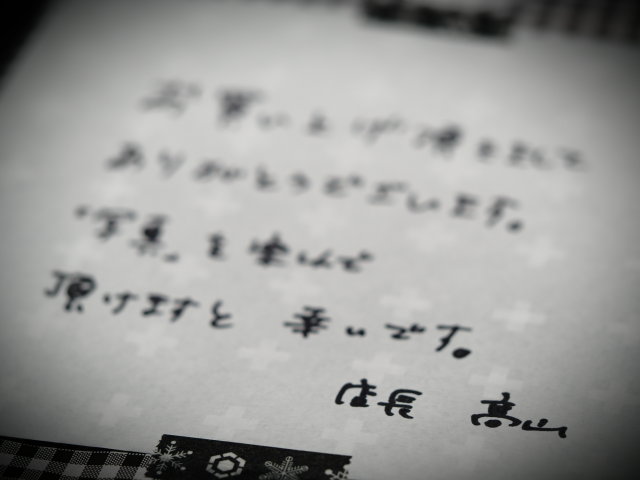 お買い上げ頂きまして
ありがとうございます。
"写真"を楽しんで
頂けますと 幸いです。
店長 高山